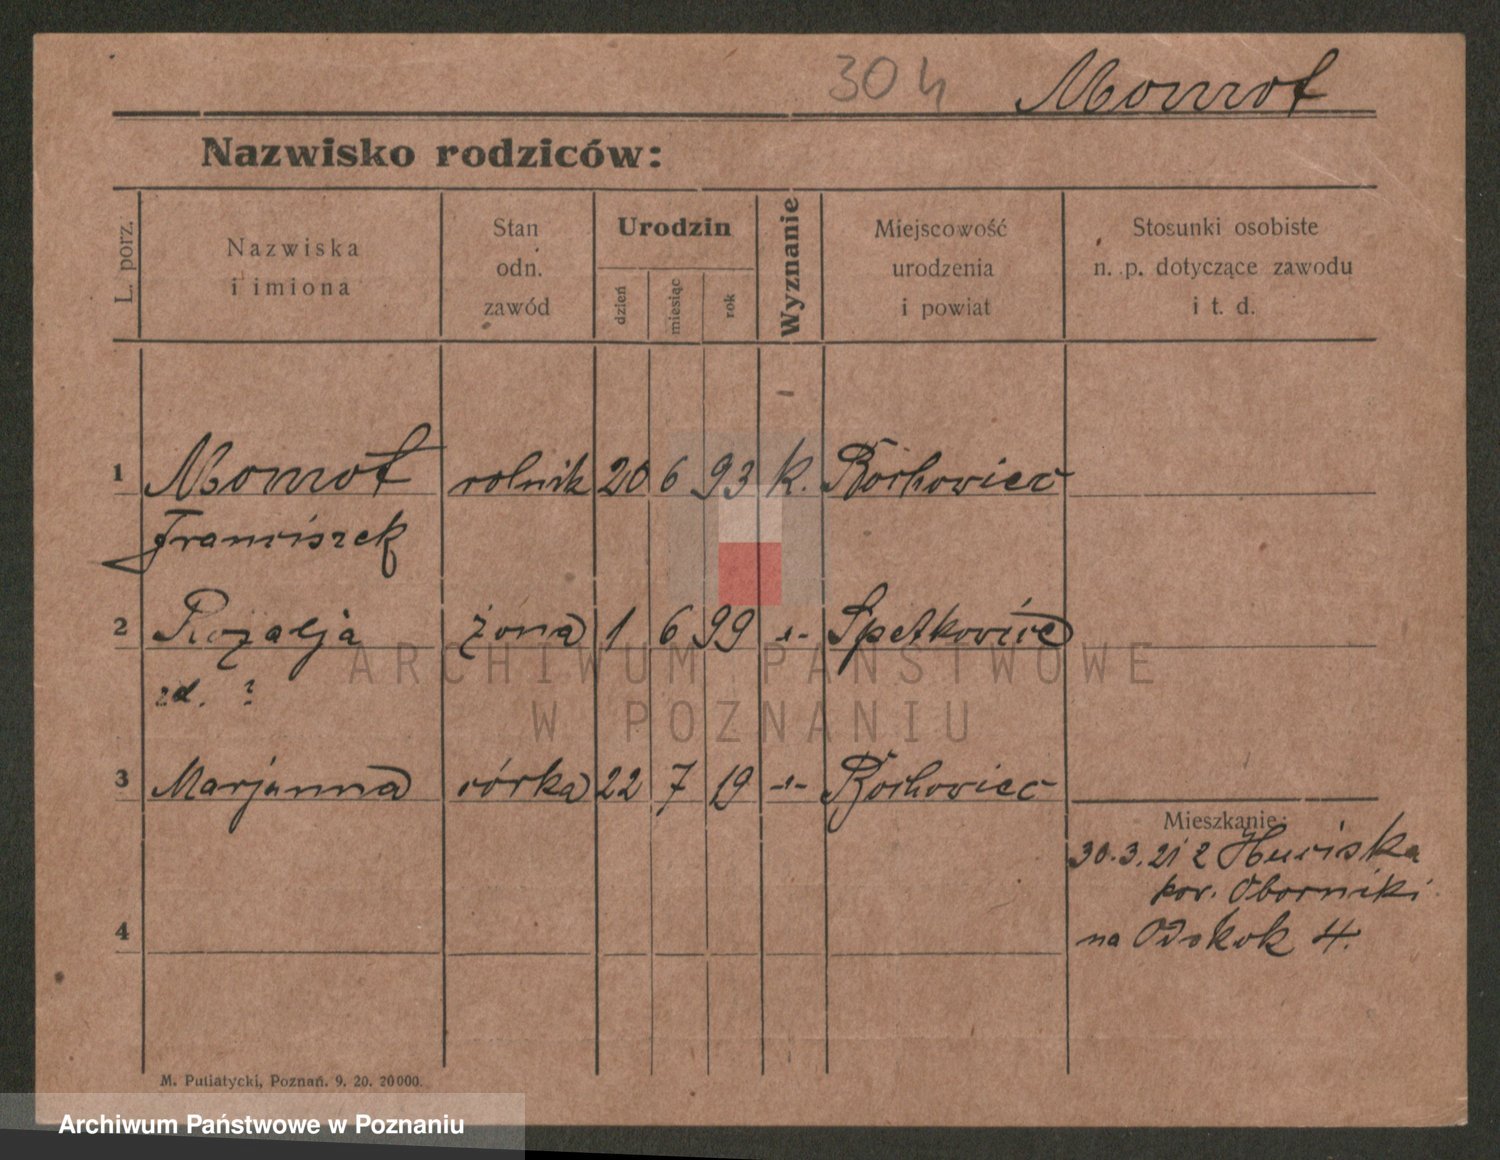 30 h
Monrot
Nazwisko rodziców:
L. porz.
Nazwiska
i imiona
Stan
odn.
zawód
Urodzin
dzień
miesiąc
rok
Wyznanie
Miejscowość
urodzenia
i powiat
Stosunki osobiste
n. p. dotyczące zawodu
i t. d.
1 Monrot rolnik 20 6 93 k.
Franciszek
2 Rozalja żona 1 6 99 -"-
zd. ?
3 Marjanna córka 22 7 19 -"-
Mieszkanie:
30.3.21 z
pow. Oborniki
na Odskok 4.
4
M. Putiatycki, Poznań. 9. 20. 20000.
ARCHIWUM PAŃSTWOWE
W POZNANIU
Archiwum Państwowe w Poznaniu